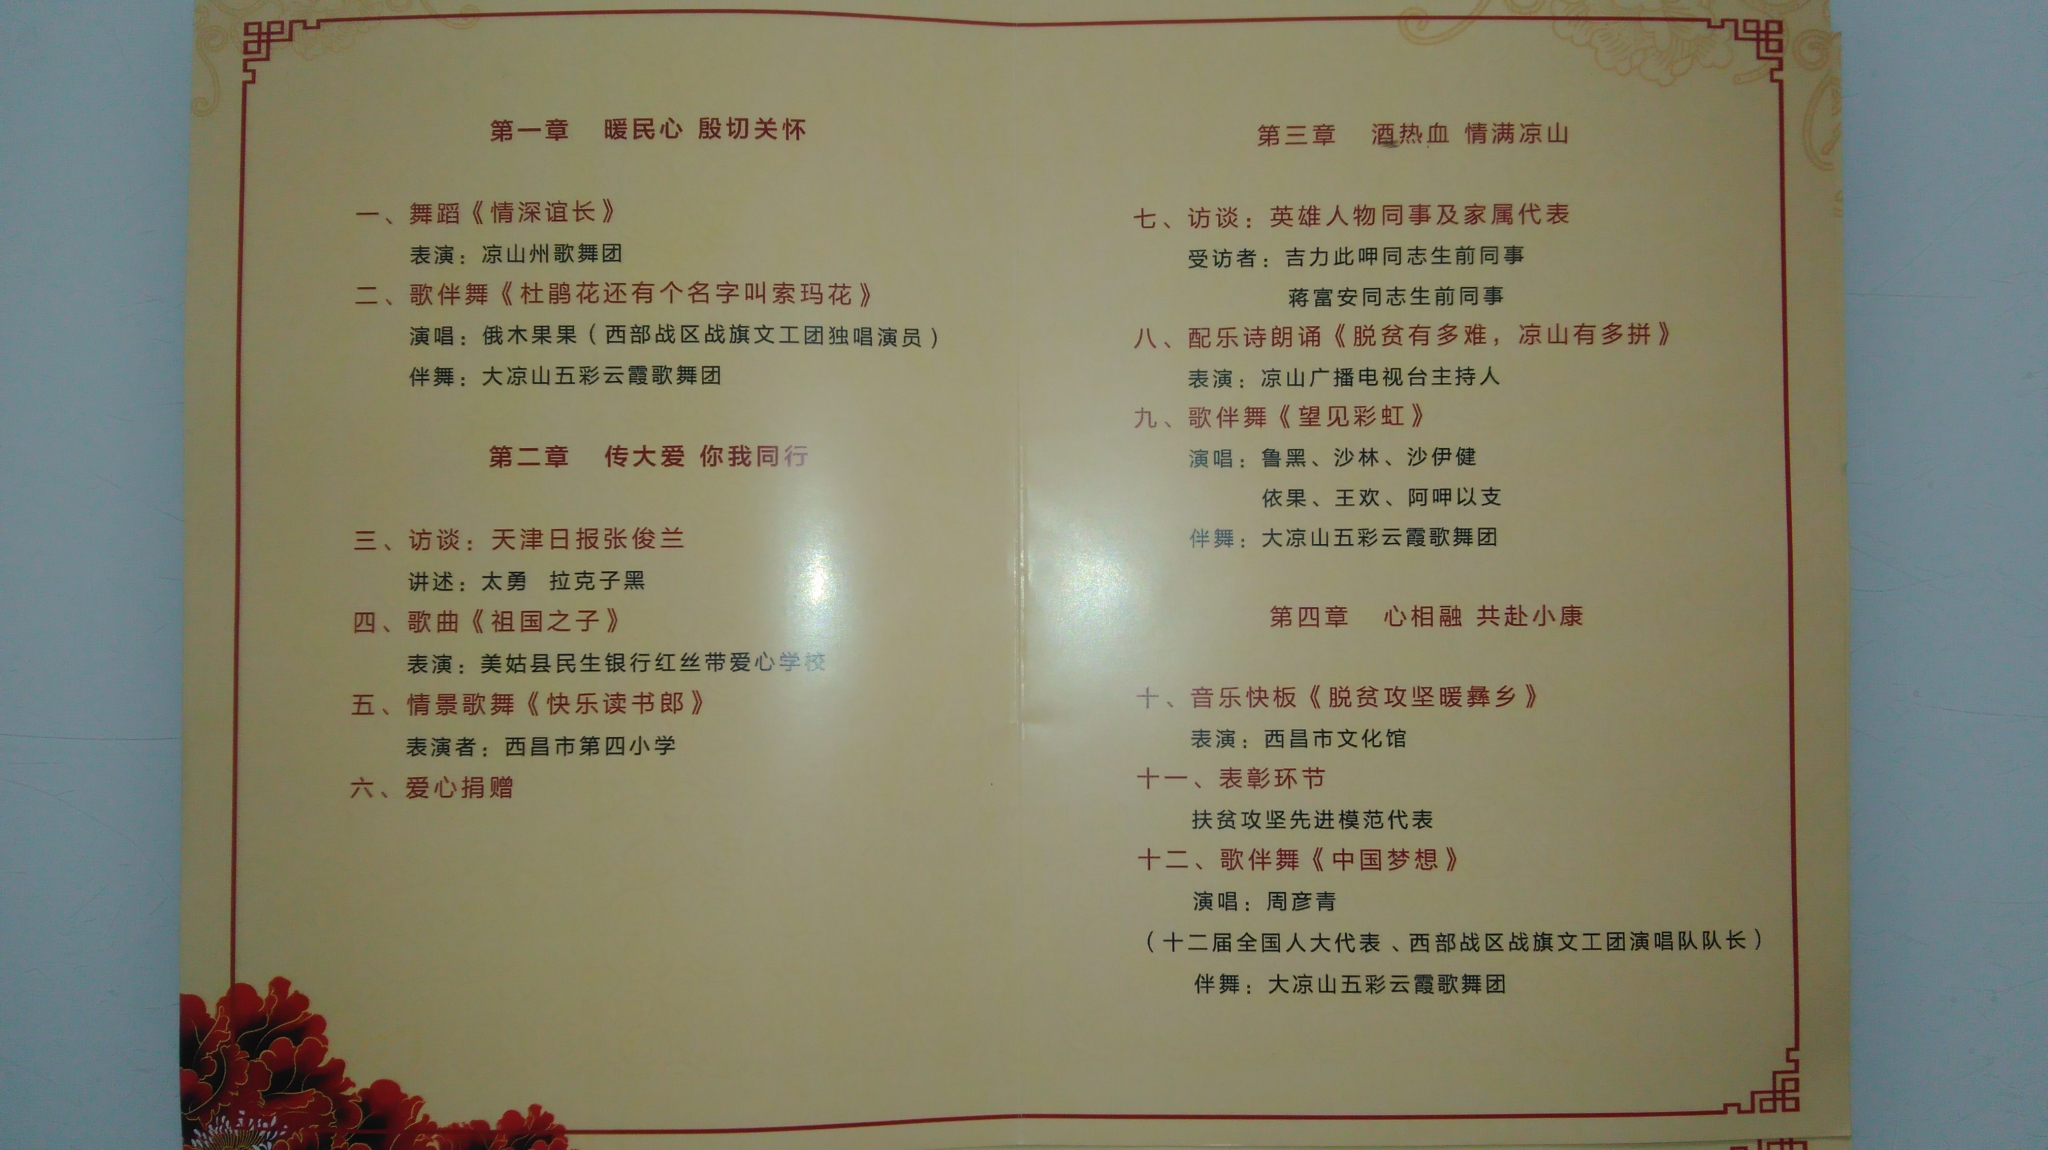 第一章 暖民心 殷切关怀
一、舞蹈《情深谊长》
表演：凉山州歌舞团
二、歌伴舞《杜鹃花还有个名字叫索玛花》
演唱：俄木果果（西部战区战旗文工团独唱演员）
伴舞：大凉山五彩云霞歌舞团
第二章 传大爱 你我同行
三、访谈：天津日报张俊兰
讲述：太勇 拉克子黑
四、歌曲《祖国之子》
表演：美姑县民生银行红丝带爱心学校
五、情景歌舞《快乐读书郎》
表演者：西昌市第四小学
六、爱心捐赠
第三章 酒热血 情满凉山
七、访谈：英雄人物同事及家属代表
受访者：吉力此呷同志生前同事
蒋富安同志生前同事
八、配乐诗朗诵《脱贫有多难，凉山有多拼》
表演：凉山广播电视台主持人
九、歌伴舞《望见彩虹》
演唱：鲁黑、沙林、沙伊健
依果、王欢、阿呷以支
伴舞：大凉山五彩云霞歌舞团
第四章 心相融 共赴小康
十、音乐快板《脱贫攻坚暖彝乡》
表演：西昌市文化馆
十一、表彰环节
扶贫攻坚先进模范代表
十二、歌伴舞《中国梦想》
演唱：周彦青
（十二届全国人大代表、西部战区战旗文工团演唱队队长）
伴舞：大凉山五彩云霞歌舞团